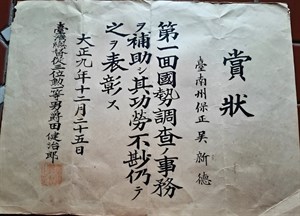 賞狀
臺南州保正 吳新德
第一回國勢調查ノ事務
ヲ補助シ其功勞不尠仍テ
之ヲ表彰ス
大正九年十二月二十五日
臺灣總督從三位勳一等男爵田健治郎